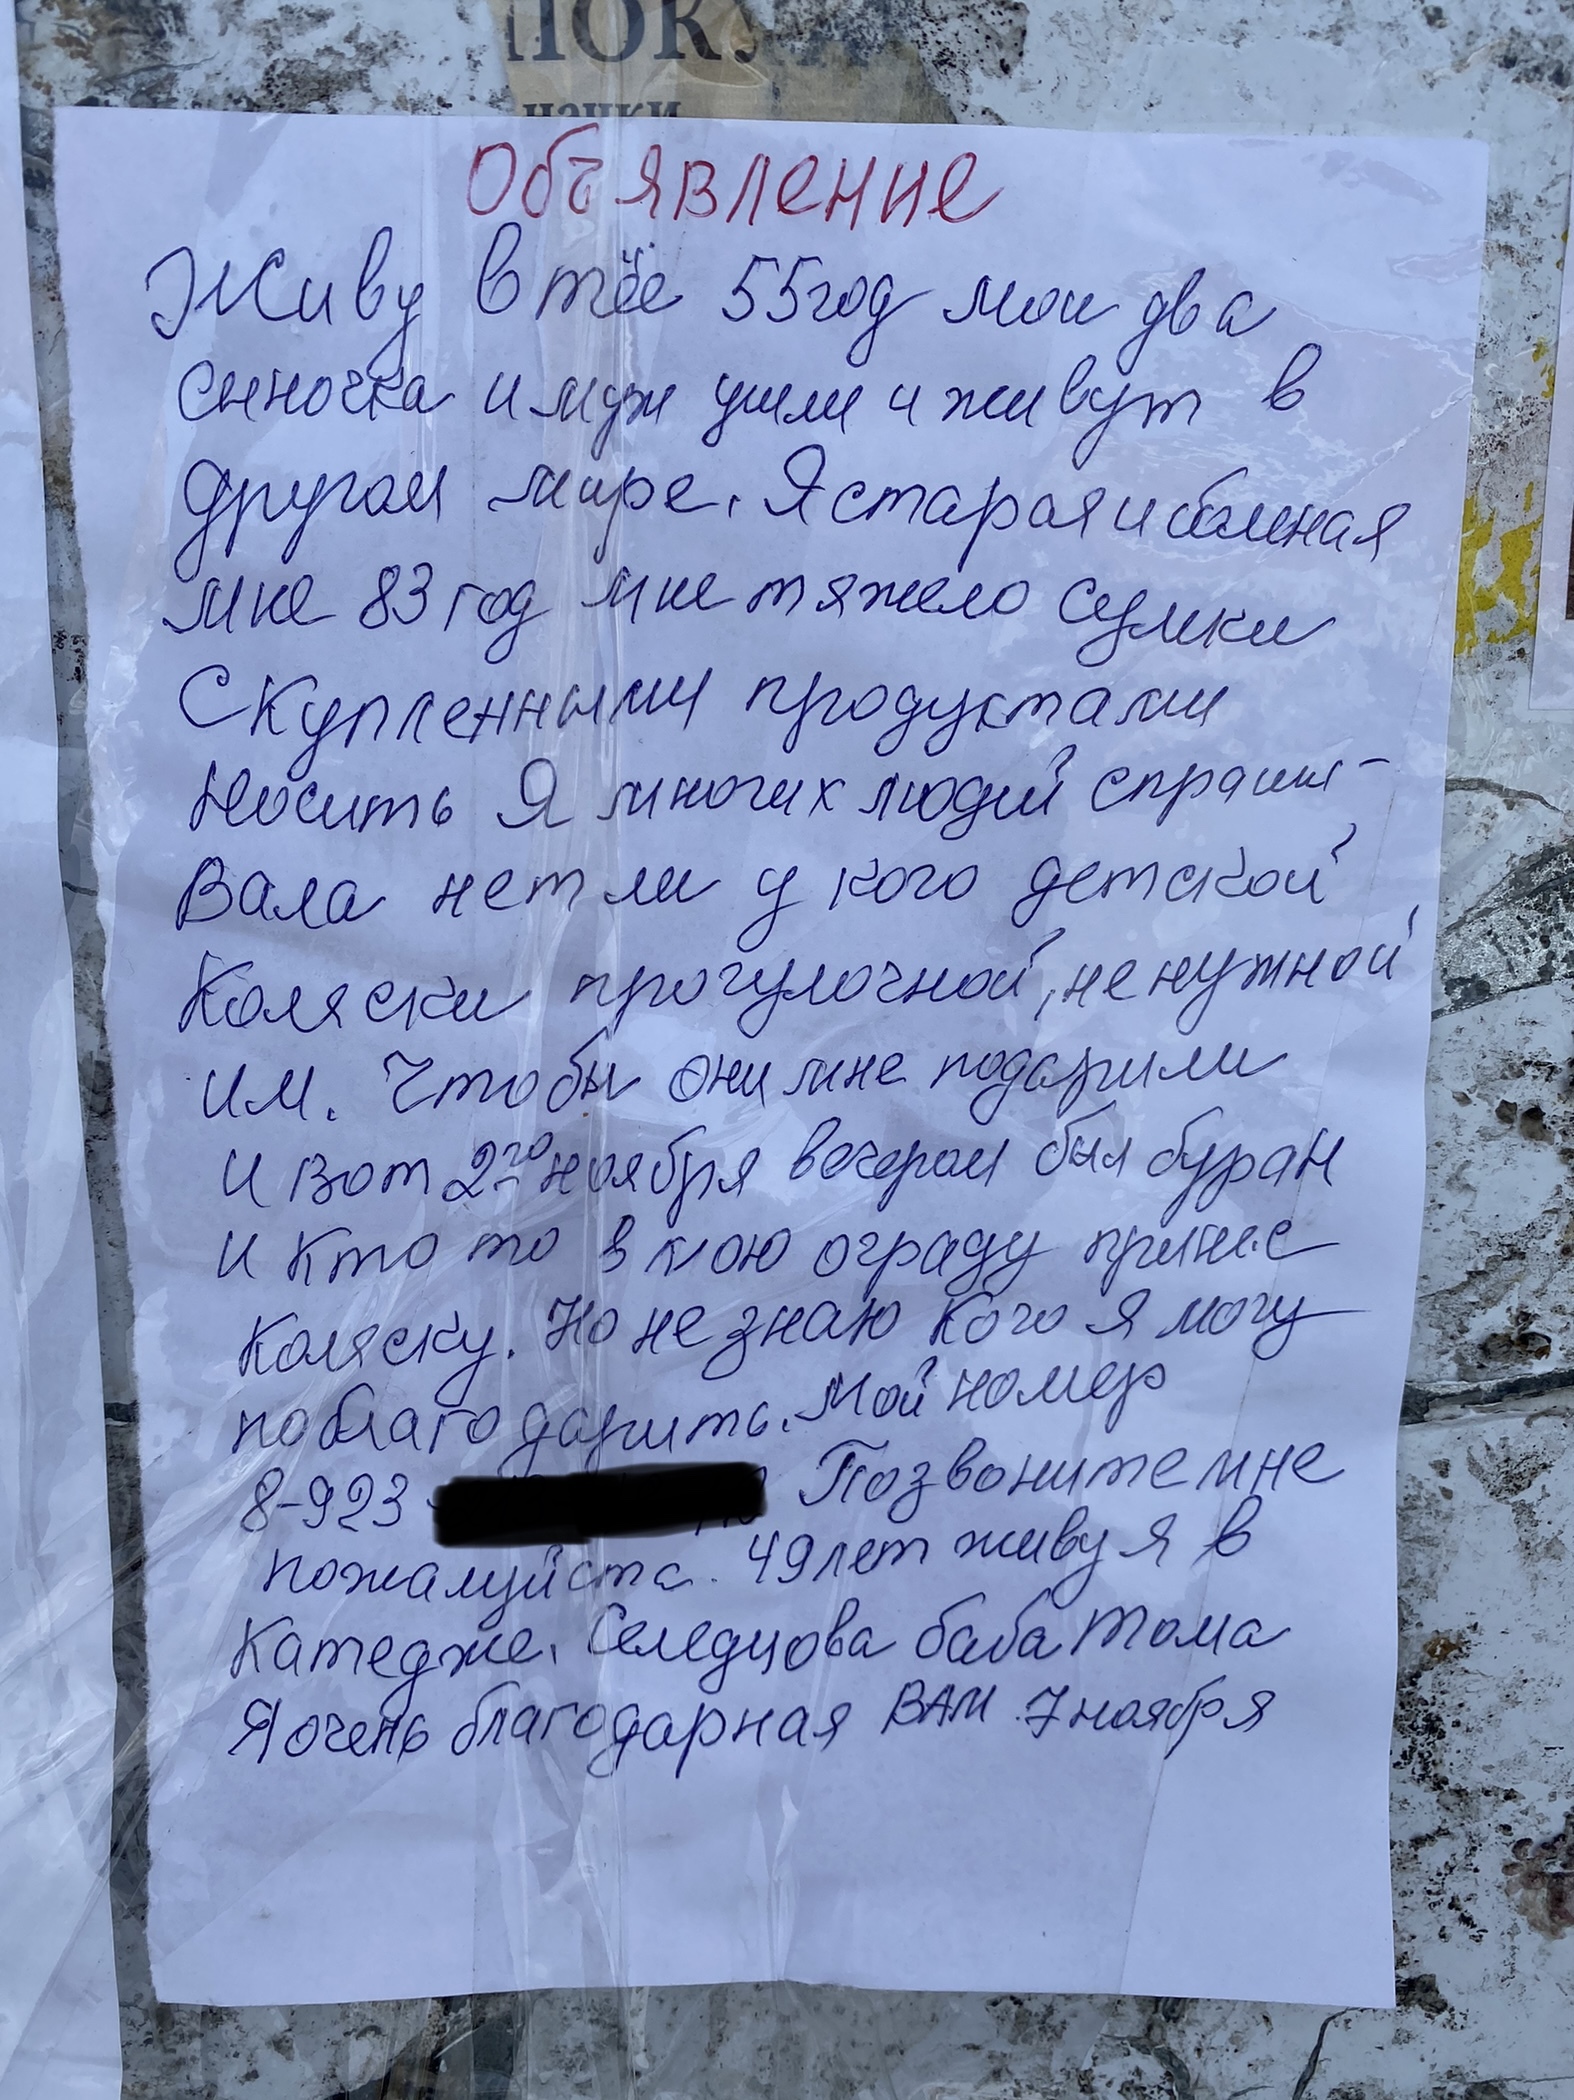 Объявление
Живу в тёе 55 год мои два
сыночка и муж ушли и живут в
другом мире. Я старая и больная
мне 83 год мне тяжело сумки
с купленными продуктами
носить Я многих людий спраши-
вала нет ли у кого детской
коляски прогулочной, не нужной
им. Чтобы они мне подарили
и вот 2го ноября вечером был буран
и кто то в мою ограду принес
коляску. Но не знаю кого я могу
поблагодарить. Мой номер
8-923 Позвоните мне
пожалуйста. 49 лет живу я в
катедже. Селедцова баба Тома
Я очень благодарная ВАМ 7 ноября